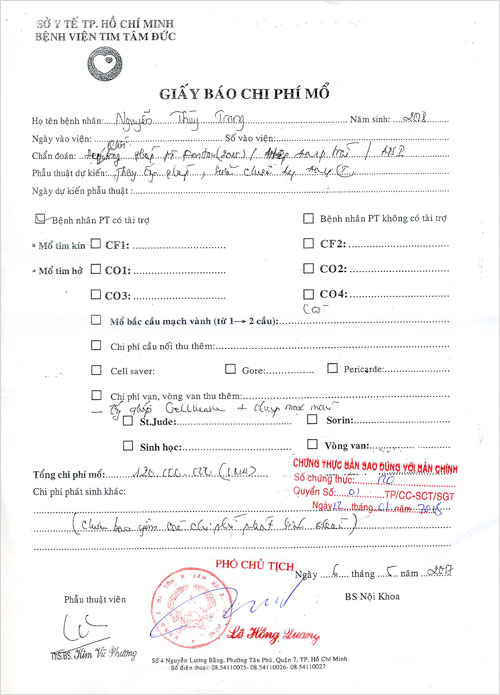 SỞ Y TẾ TP. HỒ CHÍ MINH
BỆNH VIỆN TIM TÂM ĐỨC
GIẤY BÁO CHI PHÍ MỔ
Họ tên bệnh nhân: Nguyễn Thùy Trang Năm sinh: 2008
Ngày vào viện: Số vào viện:
Chẩn đoán: ghép Fontan (2015) /
Phẫu thuật dự kiến: Thay ống ghép,
Ngày dự kiến phẫu thuật:
Bệnh nhân PT có tài trợ Bệnh nhân PT không có tài trợ
* Mổ tim kín CF1: CF2:
* Mổ tim hở CO1: CO2:
CO3: CO4:
Mổ bắc cầu mạch vành (từ 1→ 2 cầu):
Chi phí cầu nối thu thêm:
Cell saver: Gore: Pericarde:
Chi phí van, vòng van thu thêm:
— ống ghép + chụp mạch máu
St.Jude: Sorin:
Sinh học: Vòng van:
CHỨNG THỰC BẢN SAO ĐÚNG VỚI BẢN CHÍNH
Tổng chi phí mổ: 120.000.000
Số chứng thực: 170
Chi phí phát sinh khác:
Quyển Số: 01 TP/CC-SCT/SGT
Ngày 12 tháng 01 năm 2018
(Chưa bao gồm các chi phí phát sinh khác)
PHÓ CHỦ TỊCH
Ngày 6 tháng 5 năm 2017
Phẫu thuật viên BS Nội Khoa
Lê Hồng Quang
THS.BS. Kim Vũ Phương
Số 4 Nguyễn Lương Bằng, Phường Tân Phú, Quận 7, TP. Hồ Chí Minh
Số điện thoại: 08.54110025- 08.54110026- 08.54110027